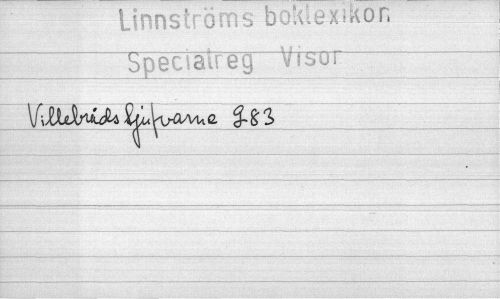 Linnströms boklexikon
Specialreg Visor
Villebrådstjufvarne 983